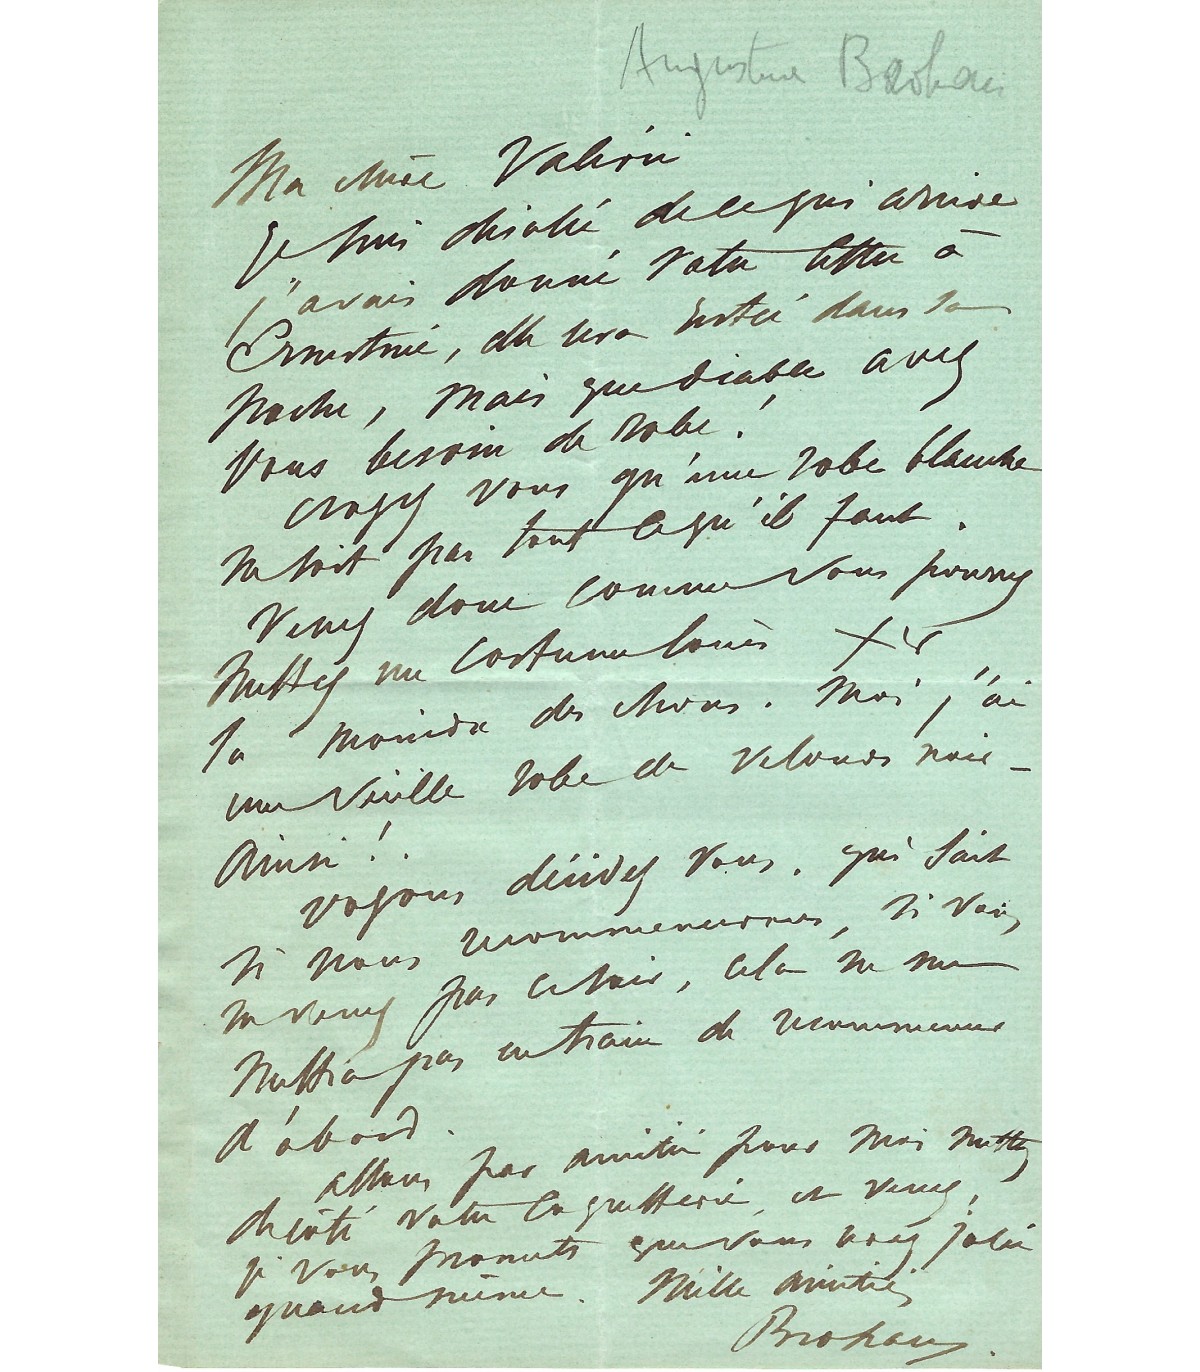 Augustine Brohan
Ma chère Valérie
Je suis désolée de ce qui arrive
j'avais donné votre lettre à
Ernestine, elle sera restée dans sa
poche, mais que diable avez
vous besoin de robe!
croyez vous qu'une robe blanche
ne soit pas tout ce qu'il faut.
Venez donc comme vous pourrez
Mettez un costume Louis XV
la moindre des choses. Moi j'ai
une vieille robe de velours noir –
Ainsi!.
voyons décidez vous. qui sait
si nous recommencerons, si vous
ne venez pas ce soir, cela ne me
mettra pas en train de recommencer
d'abord.
allons par amitié pour moi mettez
de côté votre coquetterie et venez,
je vous promets que vous serez jolie
quand même. Mille amitiés
Brohan.